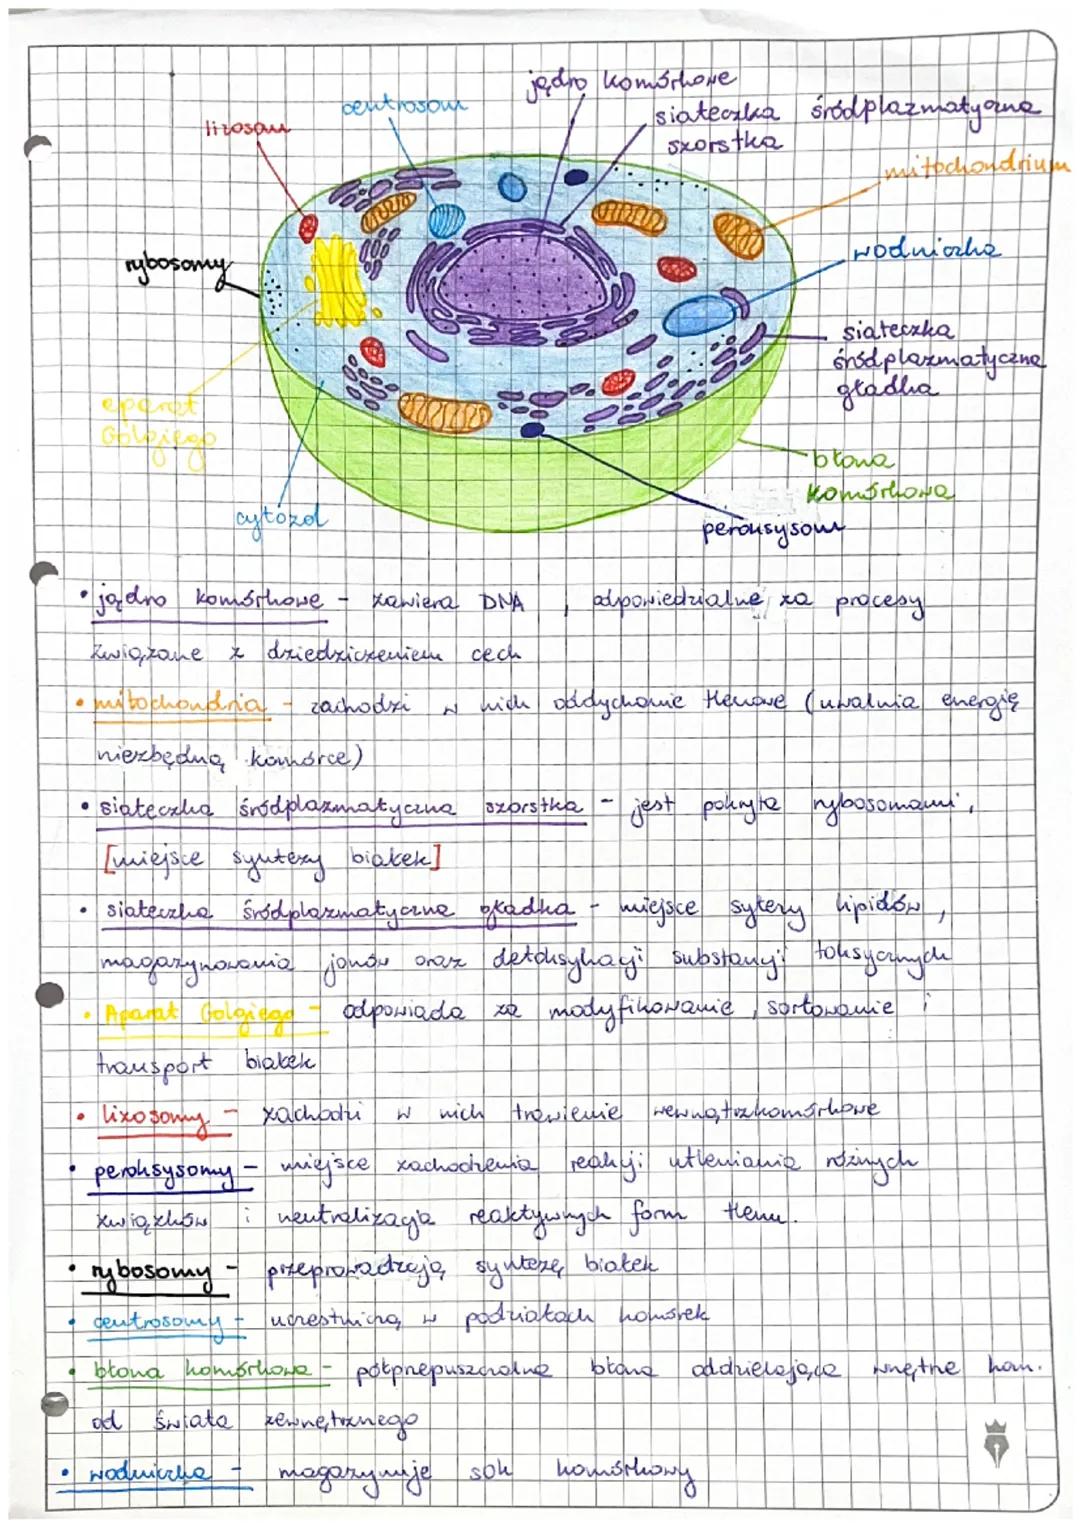 jądro komórkowe
centrosom
siateczka śródplazmatyczna
szorstka
lizosom
mitochondrium
rybosomy
wodniczka
siateczka
śródplazmatyczna
gładka
aparat
Golgiego
błona
komórkowa
cytozol
peroksysom
• jądro komórkowe - zawiera DNA , odpowiedzialne za procesy
związane z dziedziczeniem cech
• mitochondria - zachodzi w nich oddychanie tlenowe (uwalnia energię
niezbędną komórce)
• siateczka śródplazmatyczna szorstka - jest pokryta rybosomami,
[miejsce syntezy białek]
• siateczka śródplazmatyczna gładka - miejsce sytezy lipidów ,
magazynowania jonów oraz detoksykacji substancji toksycznych
• Aparat Golgiego - odpowiada za modyfikowanie , sortowanie i
transport białek
• lizosomy - zachodzi w nich trawienie wewnątrzkomórkowe
• peroksysomy - miejsce zachodzenia reakcji utleniania różnych
związków i neutralizacja reaktywnych form tlenu.
• rybosomy - przeprowadzają syntezę białek
• centrosomy - uczestniczą w podziałach komórek
• błona komórkowa - półprzepuszczalna błona oddzielająca wnętrze kom.
od świata zewnętrznego
• wodniczka - magazynuje sok komórkowy